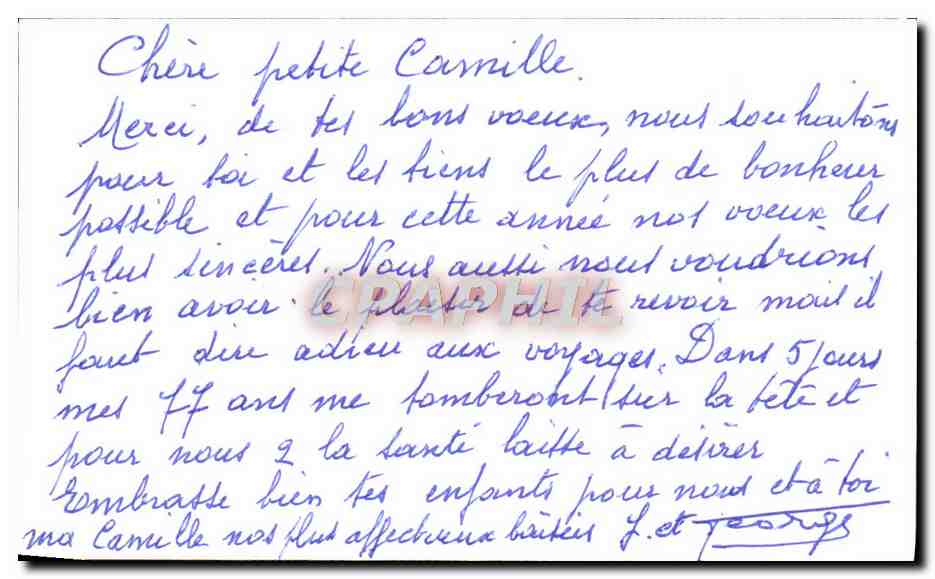 Chère petite Camille.
Merci, de tes bons voeux, nous souhaitons
pour toi et les tiens le plus de bonheur
possible et pour cette année nos voeux les
plus sincères. Nous aussi nous voudrions
bien avoir le plaisir de te revoir mais il
CPAPHIL
faut dire adieu aux voyages. Dans 5 jours
mes 77 ans me tomberont sur la tête et
pour nous 2 la santé laisse à désirer
Embrasse bien tes enfants pour nous et à toi
ma Camille nos plus affectueux baisers J. et George